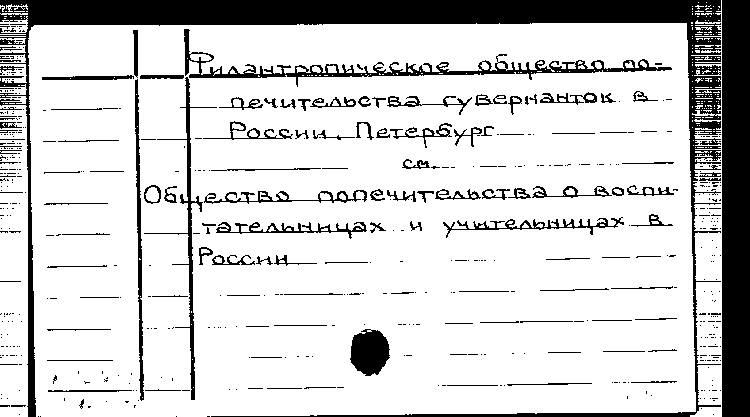 Филантропическое общество по-
печительства гувернанток в
России. Петербург
см.
Общество попечительства о воспи-
тательницах и учительницах в
России